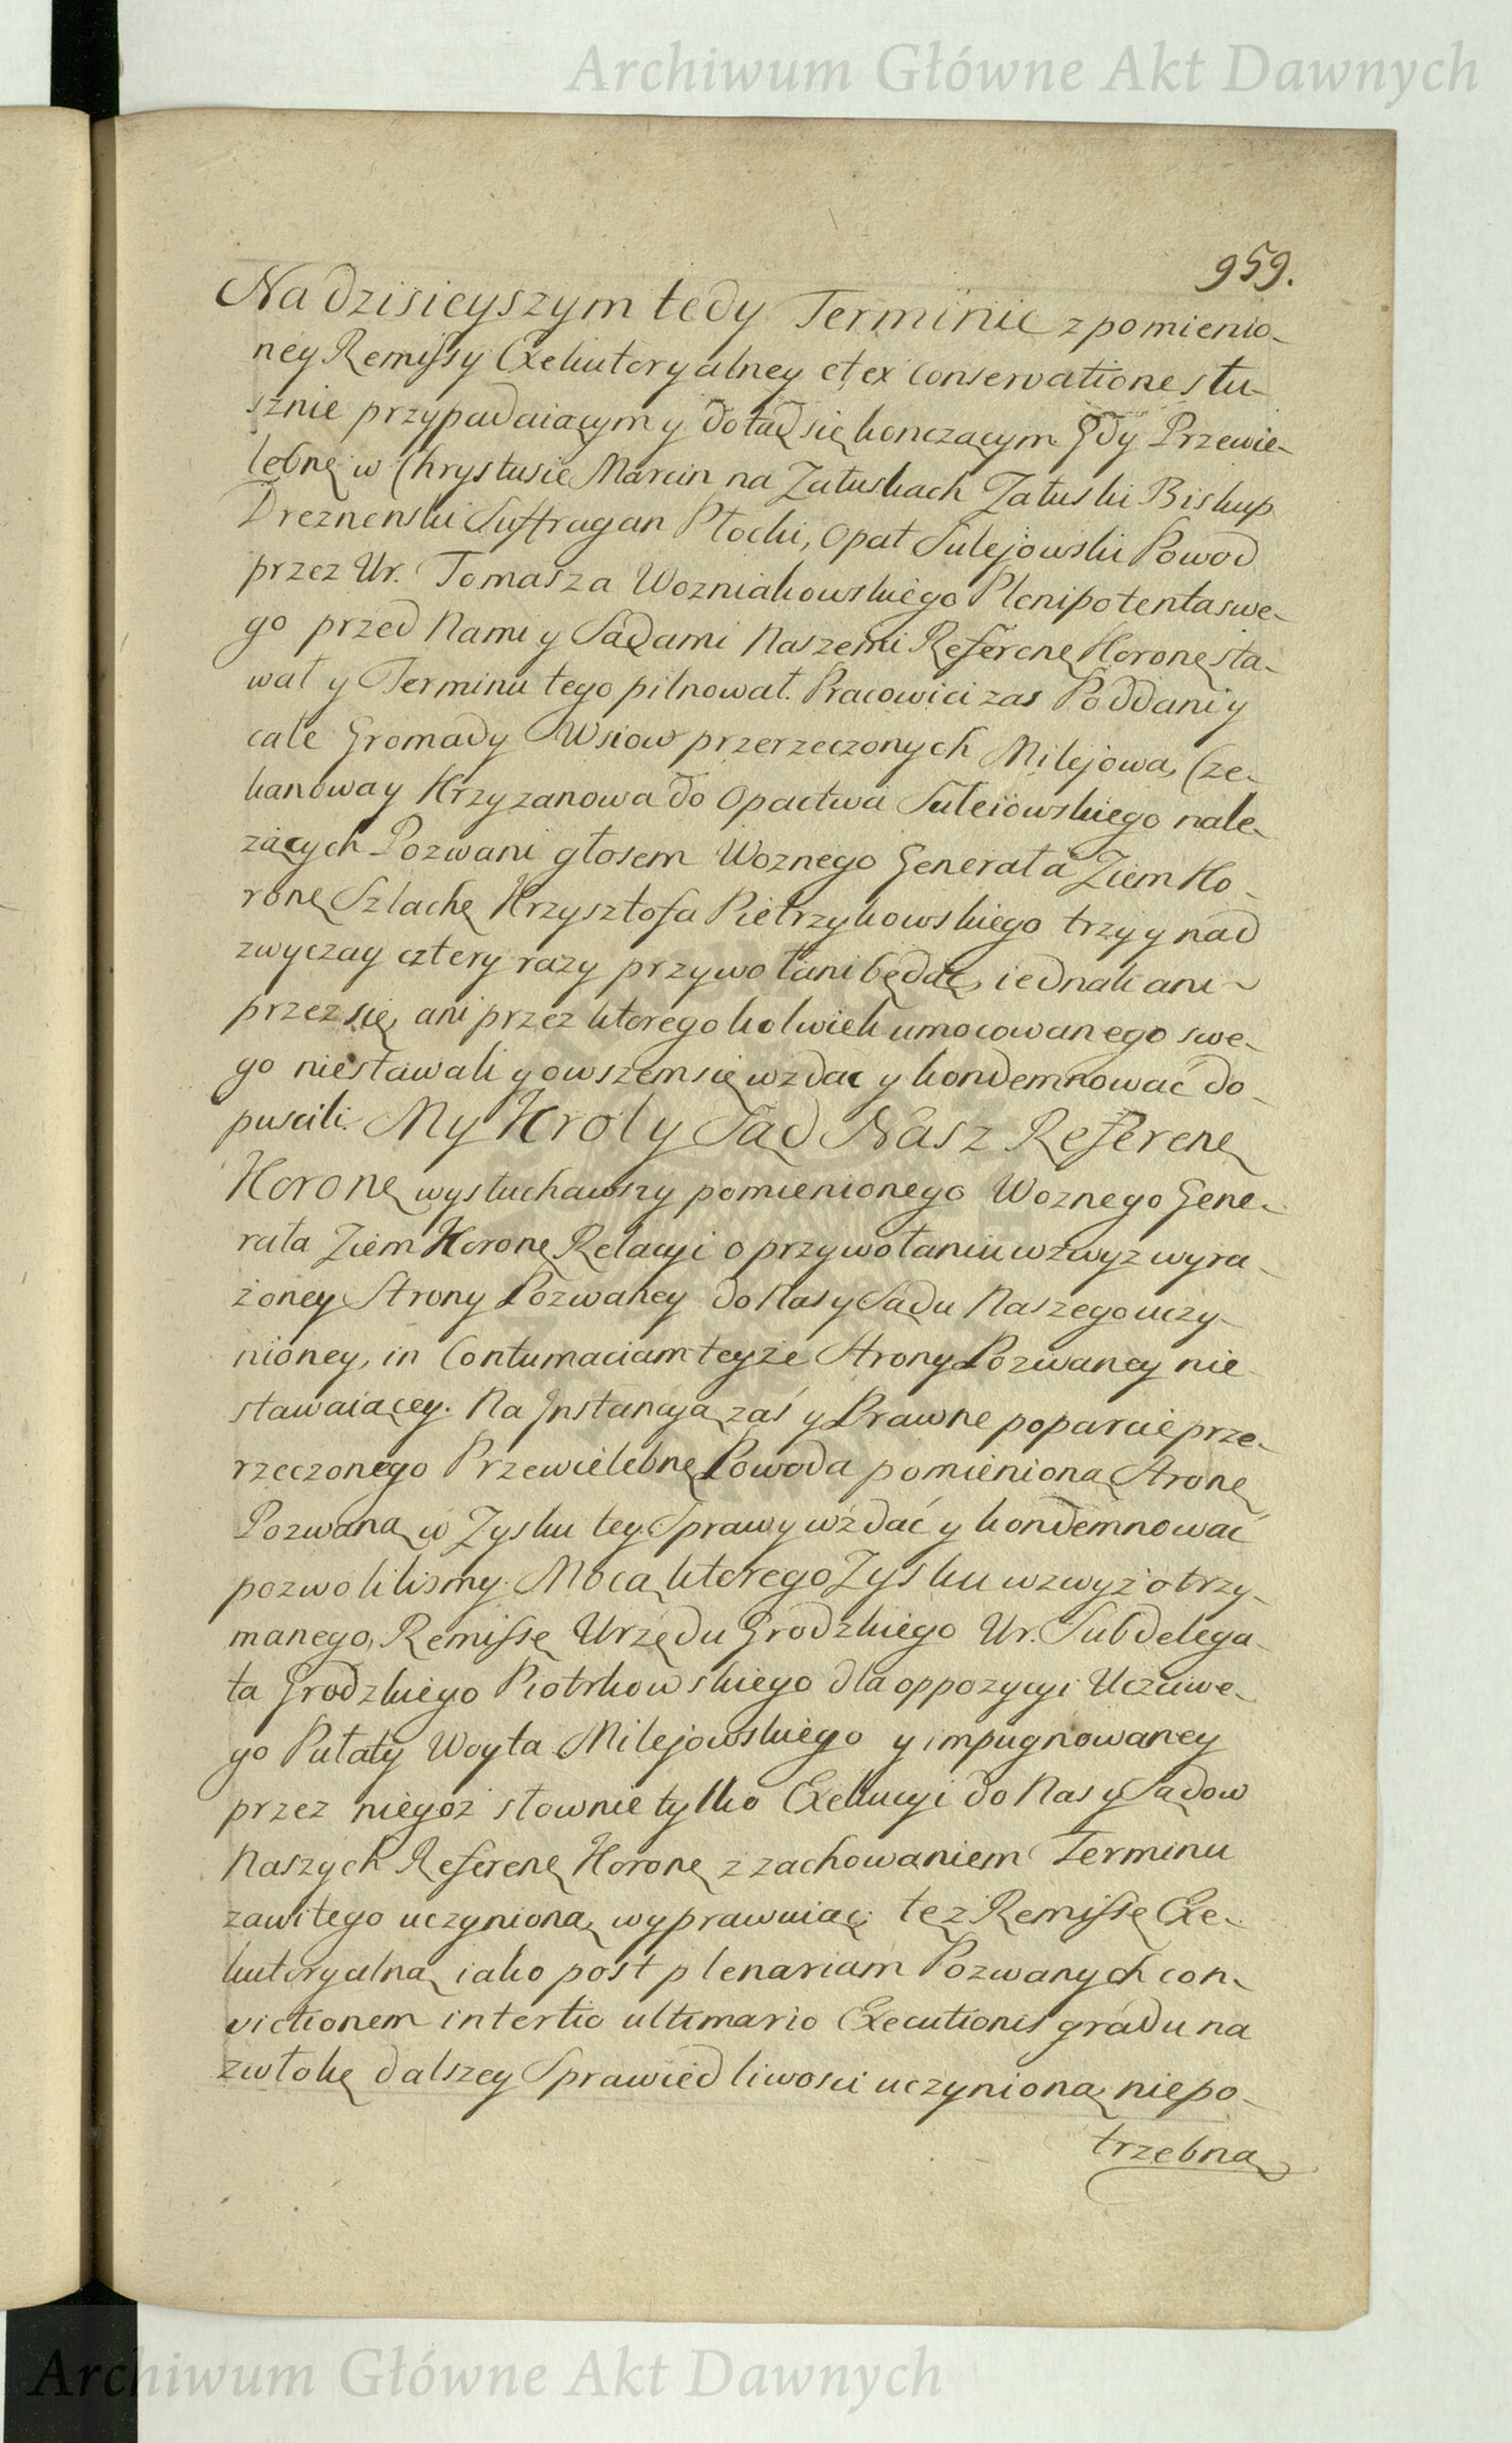 Archiwum Główne Akt Dawnych
959.
Na dzisieyszym tedy Terminie z pomienio-
ney Remissy Exekutoryalney et ex conservatione słu-
sznie przypadaiącym y dotąd się konczącym. Gdy Przewie-
lebnę w Chrystusie Marcin na Załuskach Załuski Biskup
Dreznenski Suffragan Płocki, Opat Sulejowski Powod
przez Ur. Tomasza Wozniakowskiego Plenipotenta swe-
go przed Nami y Sądami Naszemi Referenę Koronę sta-
wał y Terminu tego pilnował. Pracowici zas Poddani y
całe Gromady Wsiow przerzeczonych Milejowa, Cze-
kanowa y Krzyzanowa do Opactwa Suleiowskiego nale-
zących Pozwani głosem Woznego Generała Ziem Ko-
ronę Szlachę Krzysztofa Pietrzykowskiego trzy y nad
zwyczay cztery razy przywołani będąc, iednak ani
przez się, ani przez ktoregokolwiek umocowanego swe-
go niestawali y owszem się wzdac y kondemnować do-
puscili. My Krol y Sąd Nasz Referenę
Koronę wysłuchawszy pomienionego Woznego Gene-
rała Ziem Koronę Relacyi o przywołaniu wzwyz wyra-
żoney Strony Pozwaney do Nas y Sądu Naszego uczy-
nioney, in Contumaciam teyże Strony Pozwaney nie
stawaiącey. Na Jnstancyą zaś y Prawne poparcie prze-
rzeczonego Przewielebnę Powoda pomienioną Stronę
Pozwaną w Zysku tey Sprawy wzdać y kondemnować
pozwolilismy. Mocą ktorego Zysku wzwyż otrzy-
manego, Remissę Urzędu Grodzkiego Ur. Subdelega-
ta Grodzkiego Piotrkowskiego dla oppozycyi Uczciwe-
go Pułaty Woyta Milejowskiego y impugnowaney
przez niegoż słownie tylko Exekucyi do Nas y Sądow
Naszych Referenę Koronę z zachowaniem Terminu
zawitego uczynioną, wyprawuiąc też Remissę Exe-
kutoryalną iako post plenariam Pozwanych con-
victionem in tertio ultimario Executionis gradu na
zwłokę dalszey Sprawiedliwosci uczynioną niepo-
trzebną
Archiwum Główne Akt Dawnych